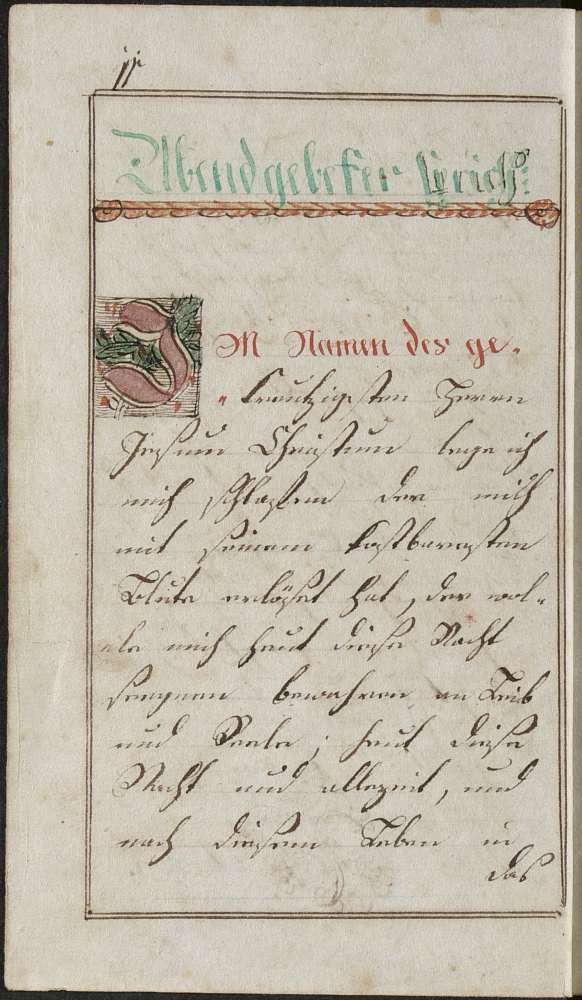 Abendgebeter
IM Namen des ge-
kreutzigesten Herrn
Jesum Christum lege ich
mich schlaffem der mich
mit seinem kostbaresten
Blute erlöset hat, der wol-
le mich heut diese Nacht
seegnen bewahren an Leib
und Seele; heut diese
Nacht und allezeit, und
nach diesem Leben in
das